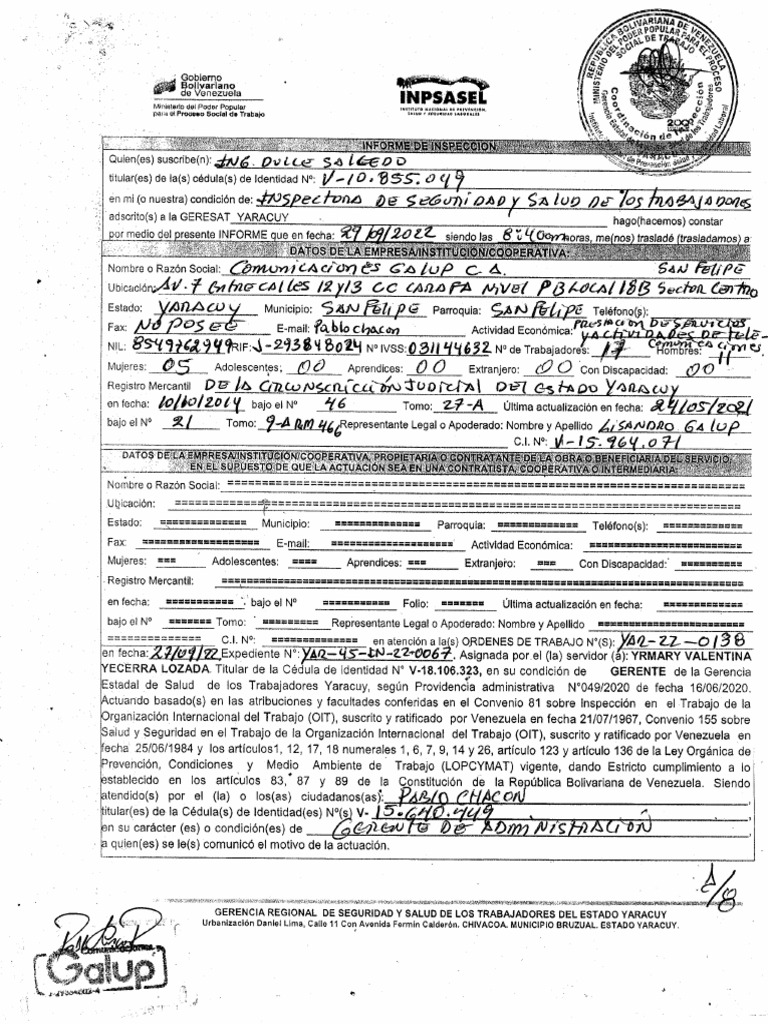 Gobierno
Bolivariano
de Venezuela
Ministerio del Poder Popular
para el Proceso Social de Trabajo
INPSASEL
INSTITUTO NACIONAL DE PREVENCIÓN,
SALUD Y SEGURIDAD LABORALES
REPÚBLICA BOLIVARIANA DE VENEZUELA
MINISTERIO DEL PODER POPULAR PARA EL PROCESO
SOCIAL DE TRABAJO
Coordinación de Inspección
INFORME DE INSPECCIÓN
Quien(es) suscribe(n): ING. DULCE SALCEDO
titular(es) de la(s) cédula(s) de Identidad Nº: V-10.855.049
en mi (o nuestra) condición de: INSPECTORA DE SEGURIDAD Y SALUD DE los TRABAJADORES
adscrito(s) a la GERESAT YARACUY hago(hacemos) constar
por medio del presente INFORME que en fecha: 27/09/2022 siendo las 8:40am horas, me(nos) trasladé (trasladamos) a:
DATOS DE LA EMPRESA/INSTITUCIÓN/COOPERATIVA:
Nombre o Razón Social: Comunicaciones GALUP C.A. SAN FELIPE
Ubicación: AV. 7 ENTRE CALLES 12 y 13 CC CARAFA NIVEL PB LOCAL 18B Sector CENTRO
Estado: YARACUY Municipio: SAN FELIPE Parroquia: SAN FELIPE Teléfono(s):
Fax: NO POSEE E-mail: Pablochacon Actividad Económica: PRESTACION DE SERVICIOS
Y ACTIVIDADES DE TELE-
COMUNICACIONES
NIL: 8549762949 RIF: J-293848024 Nº IVSS: 031144632 Nº de Trabajadores: 17 Hombres: 11
Mujeres: 05 Adolescentes: 00 Aprendices: 00 Extranjero: 00 Con Discapacidad: 00
Registro Mercantil DE LA CIRCUNSCRICCIÓN JUDICIAL DEL ESTADO YARACUY
en fecha: 10/10/2014 bajo el Nº 46 Tomo: 27-A Última actualización en fecha: 24/05/2021
bajo el Nº 21 Tomo: 9-A RM 466 Representante Legal o Apoderado: Nombre y Apellido LISANDRO GALUP
C.I. Nº: V-15.964.071
DATOS DE LA EMPRESA/INSTITUCIÓN/COOPERATIVA, PROPIETARIA O CONTRATANTE DE LA OBRA O BENEFICIARIA DEL SERVICIO,
EN EL SUPUESTO DE QUE LA ACTUACIÓN SEA EN UNA CONTRATISTA, COOPERATIVA O INTERMEDIARIA:
Nombre o Razón Social: ====================
Ubicación: ====================
Estado: ============= Municipio: ============= Parroquia: ============ Teléfono(s): ===========
Fax: ================ E-mail: ================ Actividad Económica: ================
Mujeres: === Adolescentes: === Aprendices: === Extranjero: === Con Discapacidad: ===
Registro Mercantil: ====================
en fecha: ========== bajo el Nº ========== Folio: ======= Última actualización en fecha: =========
bajo el Nº ======= Tomo: ========= Representante Legal o Apoderado: Nombre y Apellido ===========
============== C.I. Nº: ============== en atención a la(s) ORDENES DE TRABAJO Nº(S): YAR-22-0138
en fecha: 27/09/22 Expediente Nº: YAR-45-IN-22-0067. Asignada por el (la) servidor (a): YRMARY VALENTINA
YECERRA LOZADA. Titular de la Cédula de identidad N° V-18.106.323, en su condición de GERENTE de la Gerencia
Estadal de Salud de los Trabajadores Yaracuy, según Providencia administrativa N°049/2020 de fecha 16/06/2020.
Actuando basado(s) en las atribuciones y facultades conferidas en el Convenio 81 sobre Inspección en el Trabajo de la
Organización Internacional del Trabajo (OIT), suscrito y ratificado por Venezuela en fecha 21/07/1967, Convenio 155 sobre
Salud y Seguridad en el Trabajo de la Organización Internacional del Trabajo (OIT), suscrito y ratificado por Venezuela en
fecha 25/06/1984 y los artículos1, 12, 17, 18 numerales 1, 6, 7, 9, 14 y 26, artículo 123 y artículo 136 de la Ley Orgánica de
Prevención, Condiciones y Medio Ambiente de Trabajo (LOPCYMAT) vigente, dando Estricto cumplimiento a lo
establecido en los artículos 83, 87 y 89 de la Constitución de la República Bolivariana de Venezuela. Siendo
atendido(s) por el (la) o los(as) ciudadanos(as): PABLO CHACON
titular(es) de la Cédula(s) de Identidad(es) Nº(s) V- 15.640.449
en su carácter (es) o condición(es) de GERENTE DE ADMINISTRACIÓN
a quien(es) se le(s) comunicó el motivo de la actuación.
1/8
GERENCIA REGIONAL DE SEGURIDAD Y SALUD DE LOS TRABAJADORES DEL ESTADO YARACUY
Urbanización Daniel Lima, Calle 11 Con Avenida Fermín Calderón. CHIVACOA. MUNICIPIO BRUZUAL. ESTADO YARACUY.
Comunicaciones
Galup